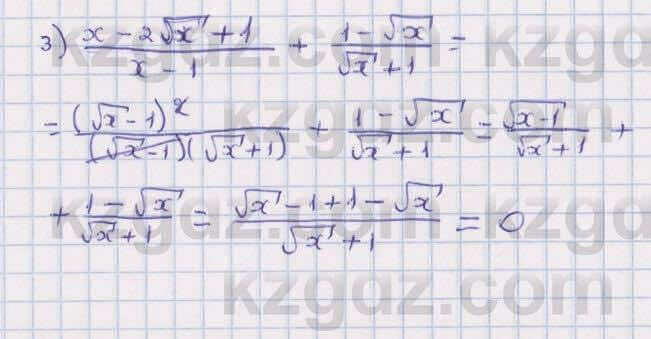 3) (x - 2√x + 1)/(x - 1) + (1 - √x)/(√x + 1) =
= (√x - 1)²/((√x - 1)(√x + 1)) + (1 - √x)/(√x + 1) = (√x - 1)/(√x + 1) +
+ (1 - √x)/(√x + 1) = (√x - 1 + 1 - √x)/(√x + 1) = 0
kzgdz.com
kzgdz.com
kzgdz.com
kzgdz.com